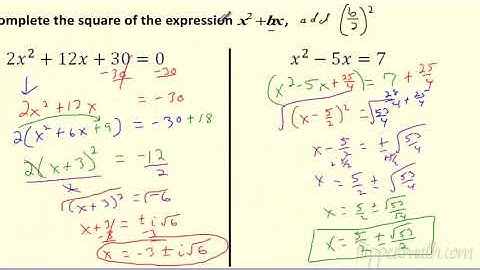 omplete the square of the expression x² + bx, add (b/2)²
2x² + 12x + 30 = 0
-30 -30
2x² + 12x = -30
2(x² + 6x + 9) = -30 + 18
2(x + 3)² = -12
2 2
√(x + 3)² = √-6
x + 3 = ± i√6
-3 -3
x = -3 ± i√6
x² − 5x = 7
(x² - 5x + 25/4) = 7 + 25/4
28/4 + 25/4
√(x - 5/2)² = √53/4
x - 5/2 = ± √53/4
+5/2 +5/2
x = 5/2 ± √53/4
x = 5/2 ± √53/√4
x = 5/2 ± √53/2